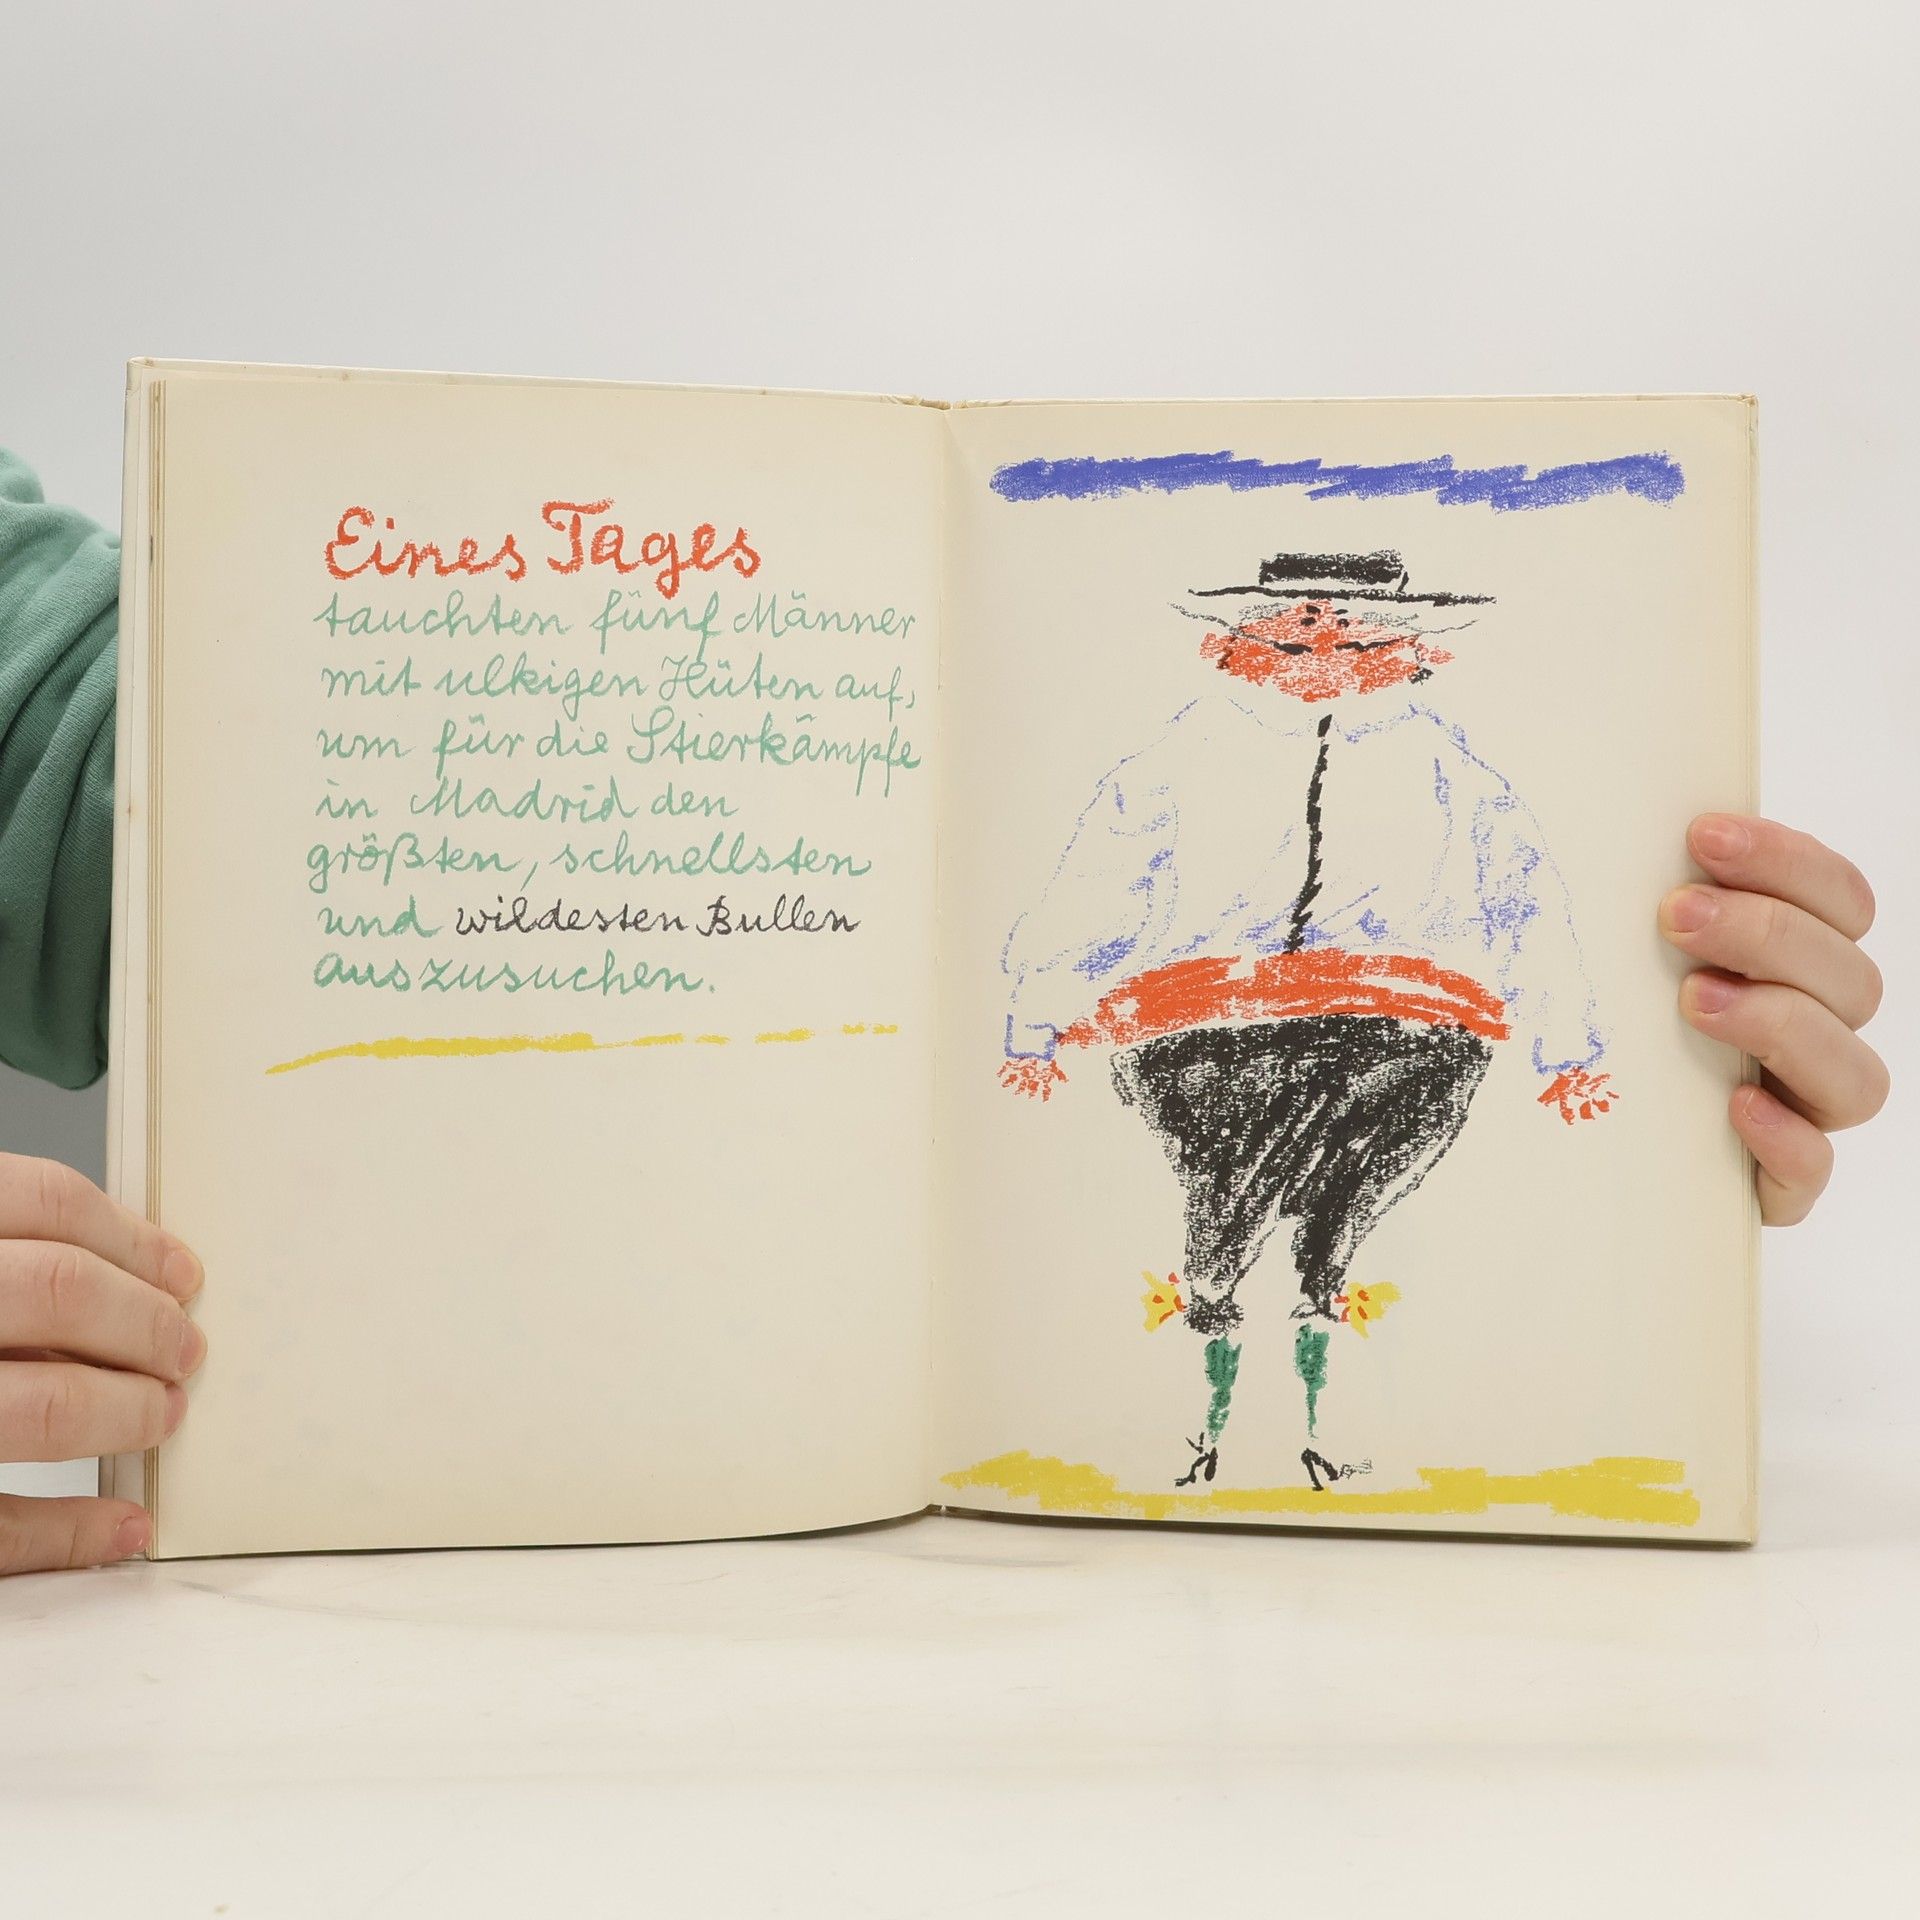 Eines Tages
tauchten fünf Männer
mit ulkigen Hüten auf,
um für die Stierkämpfe
in Madrid den
größten, schnellsten
und wildesten Bullen
auszusuchen.